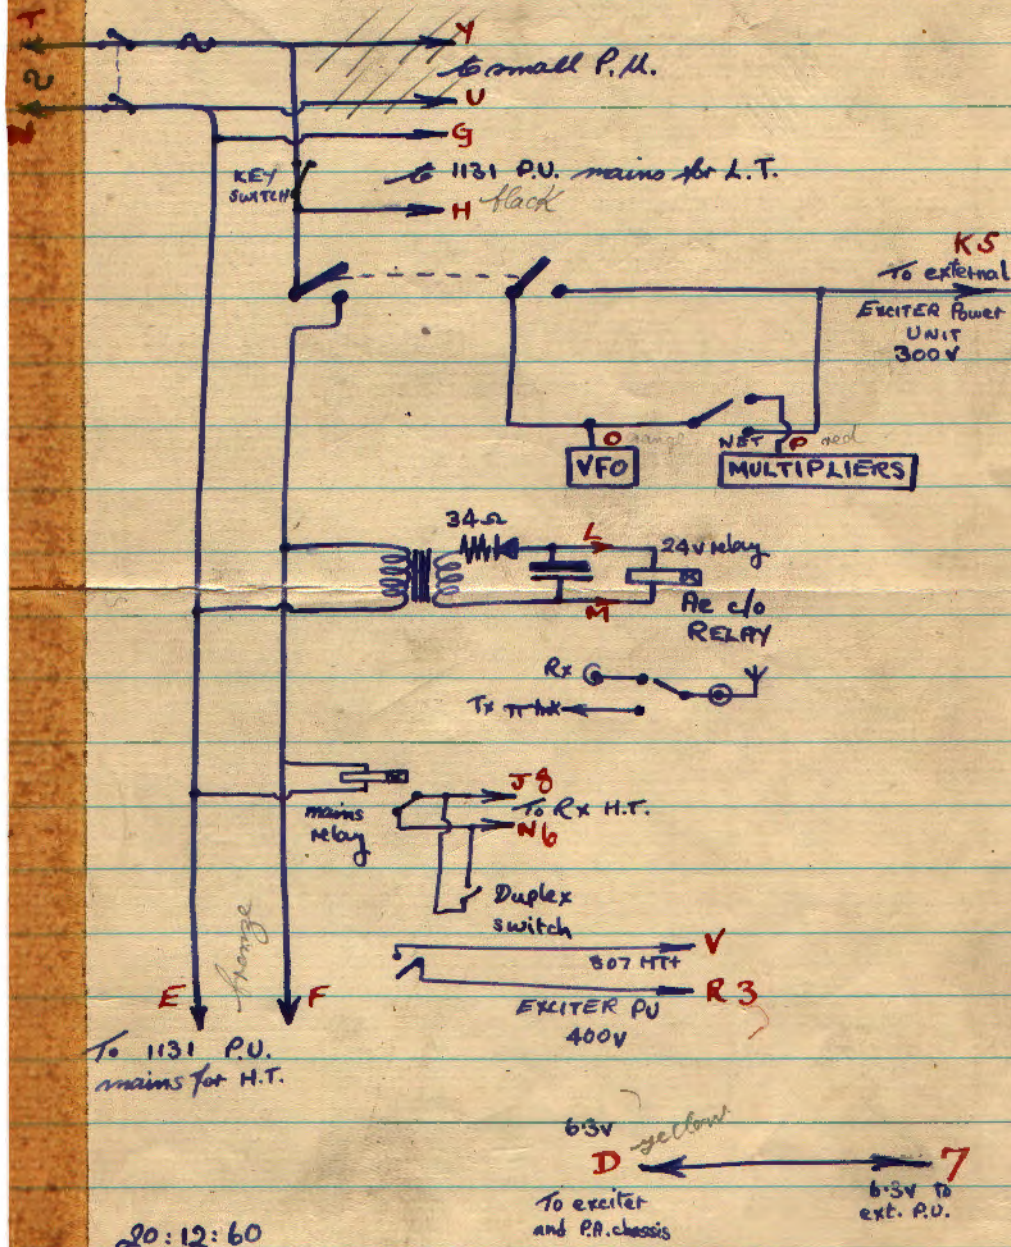 Y
to small P.U.
U
G
KEY
SWITCH
to 1131 P.U. mains for L.T.
H black
K5
To external
EXCITER Power
UNIT
300V
O range
NET P red
VFO
MULTIPLIERS
34Ω
L
24v relay
M
Ae c/o
RELAY
Rx
Tx π
J8
To Rx H.T.
N6
mains
relay
Duplex
switch
V
807 HT+
R3
EXCITER PU
400v
E
F
To 1131 P.U.
mains for H.T.
6.3v
yellow
D
7
To exciter
and P.A. chassis
6.3v to
ext. P.U.
20:12:60